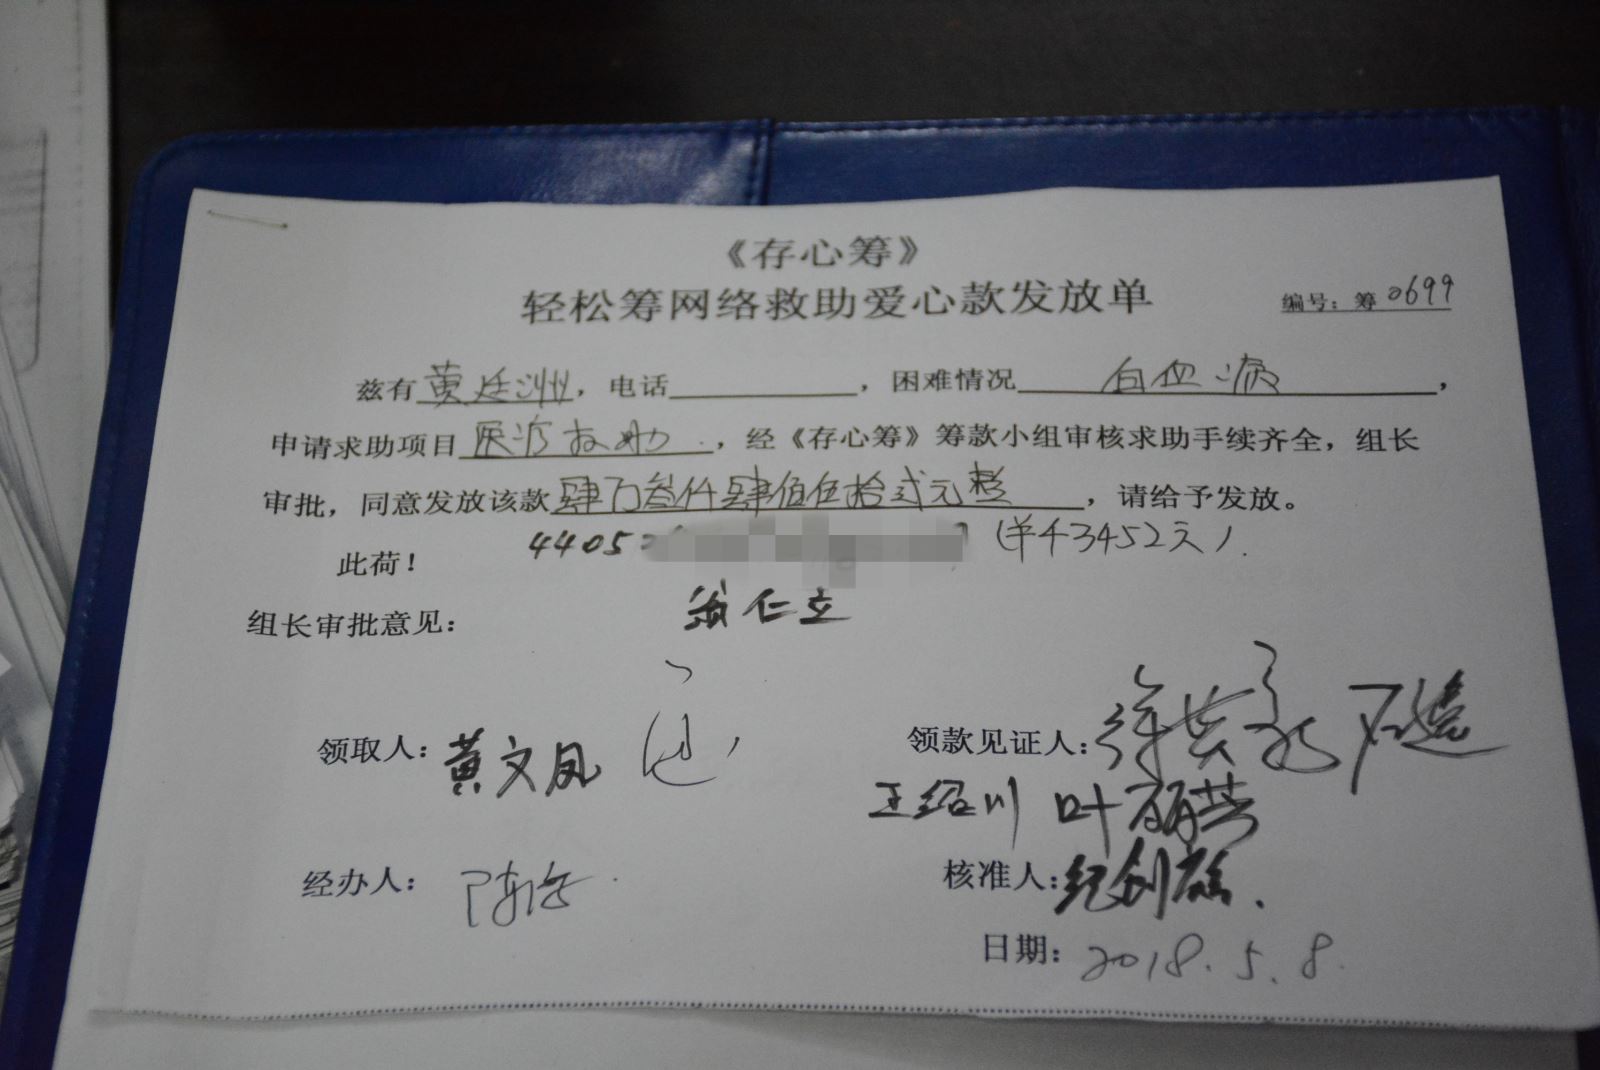 《存心筹》
轻松筹网络救助爱心款发放单
编号：筹0699
兹有黄廷洲，电话，困难情况白血病，
申请求助项目医疗救助，经《存心筹》筹款小组审核求助手续齐全，组长
审批，同意发放该款肆万叁仟肆佰伍拾贰元整，请给予发放。
44052 (¥43452元).
此荷！
组长审批意见： 翁仁立
领取人：黄文凤 领款见证人：
王绍川 叶丽芸
经办人： 核准人：纪创雄.
日期：2018.5.8.